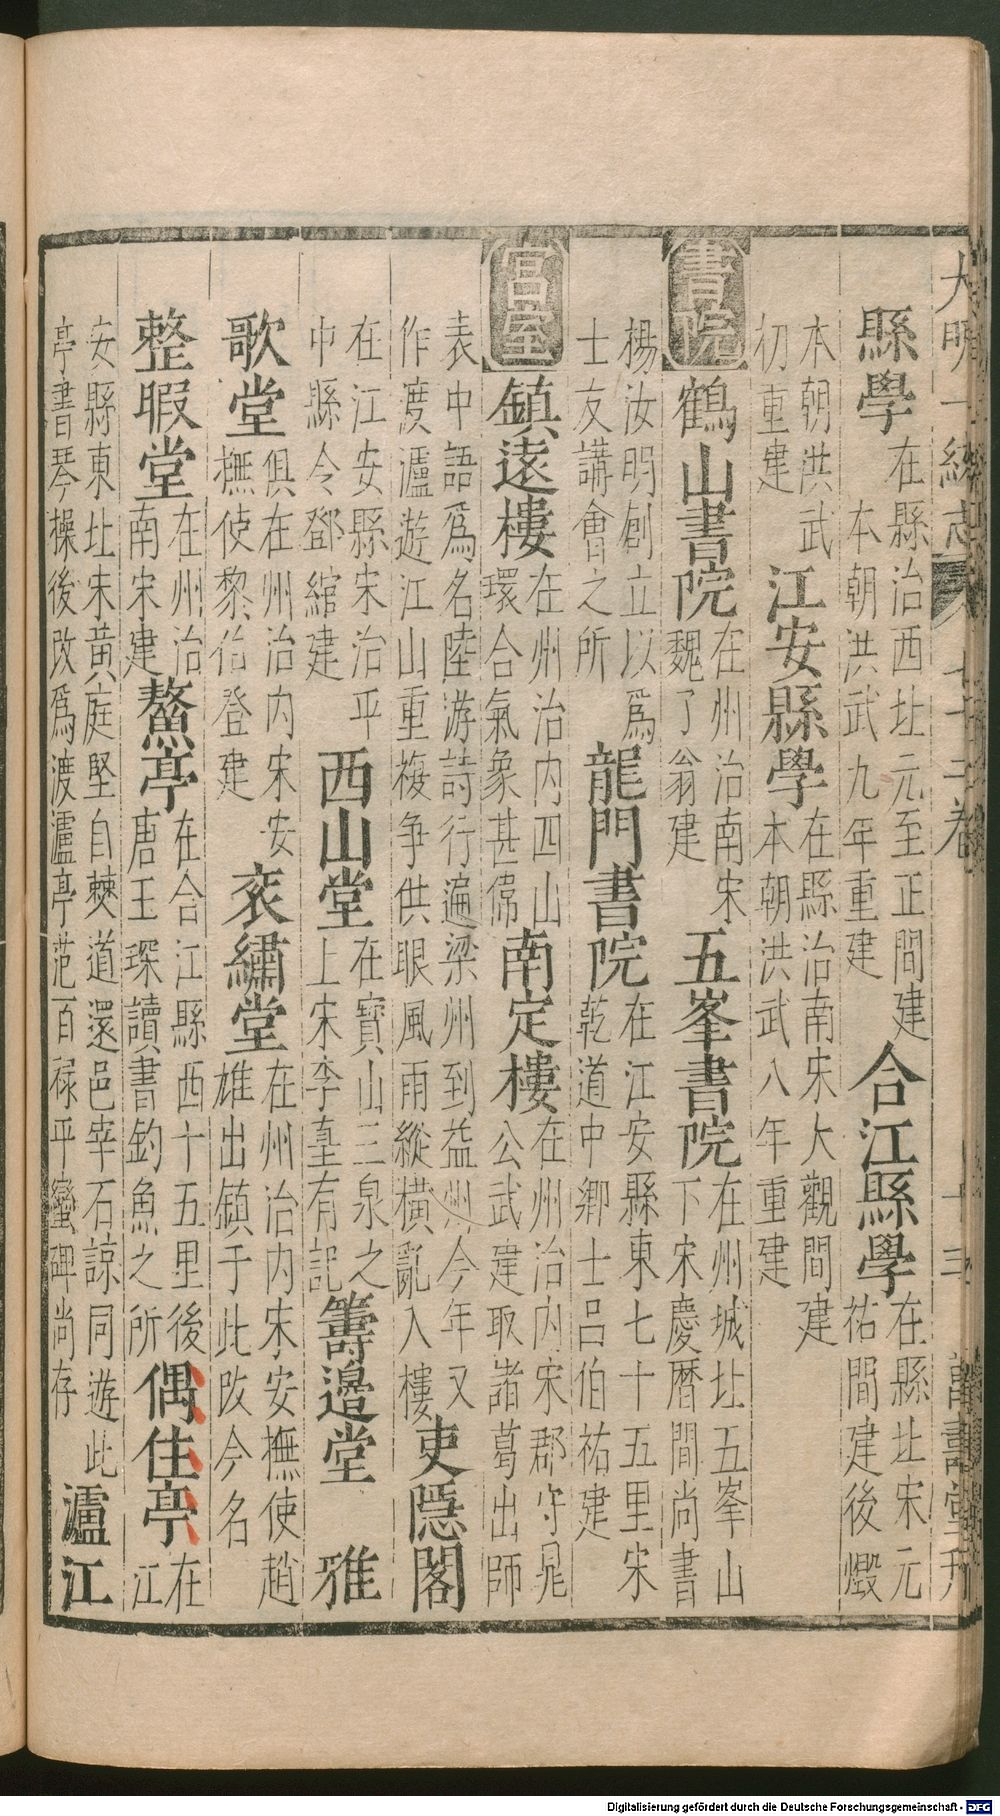 大明一統志 七十二卷 十三 萬壽堂刊
縣學 在縣治西北元至正間建 本朝洪武九年重建 合江縣學 在縣北宋元祐間建後燬
本朝洪武初重建 江安縣學 在縣治南宋大觀間建 本朝洪武八年重建
書院 鶴山書院 在州治南宋魏了翁建 五峯書院 在州城北五峯山下宋慶曆間尚書
楊汝明創立以爲士友講會之所 龍門書院 在江安縣東七十五里宋乾道中鄉士呂伯祐建
宮室 鎮遠樓 在州治內四山環合氣象甚偉 南定樓 在州治內宋郡守晁公武建取諸葛出師
表中語爲名陸游詩行遍梁州到益州今年又作渡瀘遊江山重複争供眼風雨縱橫亂入樓 吏隱閣
在江安縣宋治平中縣令鄧綰建 西山堂 在寶山三泉之上宋李𡌴有記 籌邊堂 雅
歌堂 俱在州治內宋安撫使黎伯登建 衮繡堂 在州治內宋安撫使趙雄出鎮于此改今名
整暇堂 在州治南宋建 鰲亭 在合江縣西十五里後唐王琛讀書釣魚之所 偶住亭 在江
安縣東北宋黃庭堅自僰道還邑宰石諒同遊此亭書琴操後改爲渡瀘亭范百禄平蠻碑尚存 瀘江
Digitalisierung gefördert durch die Deutsche Forschungsgemeinschaft - DFG